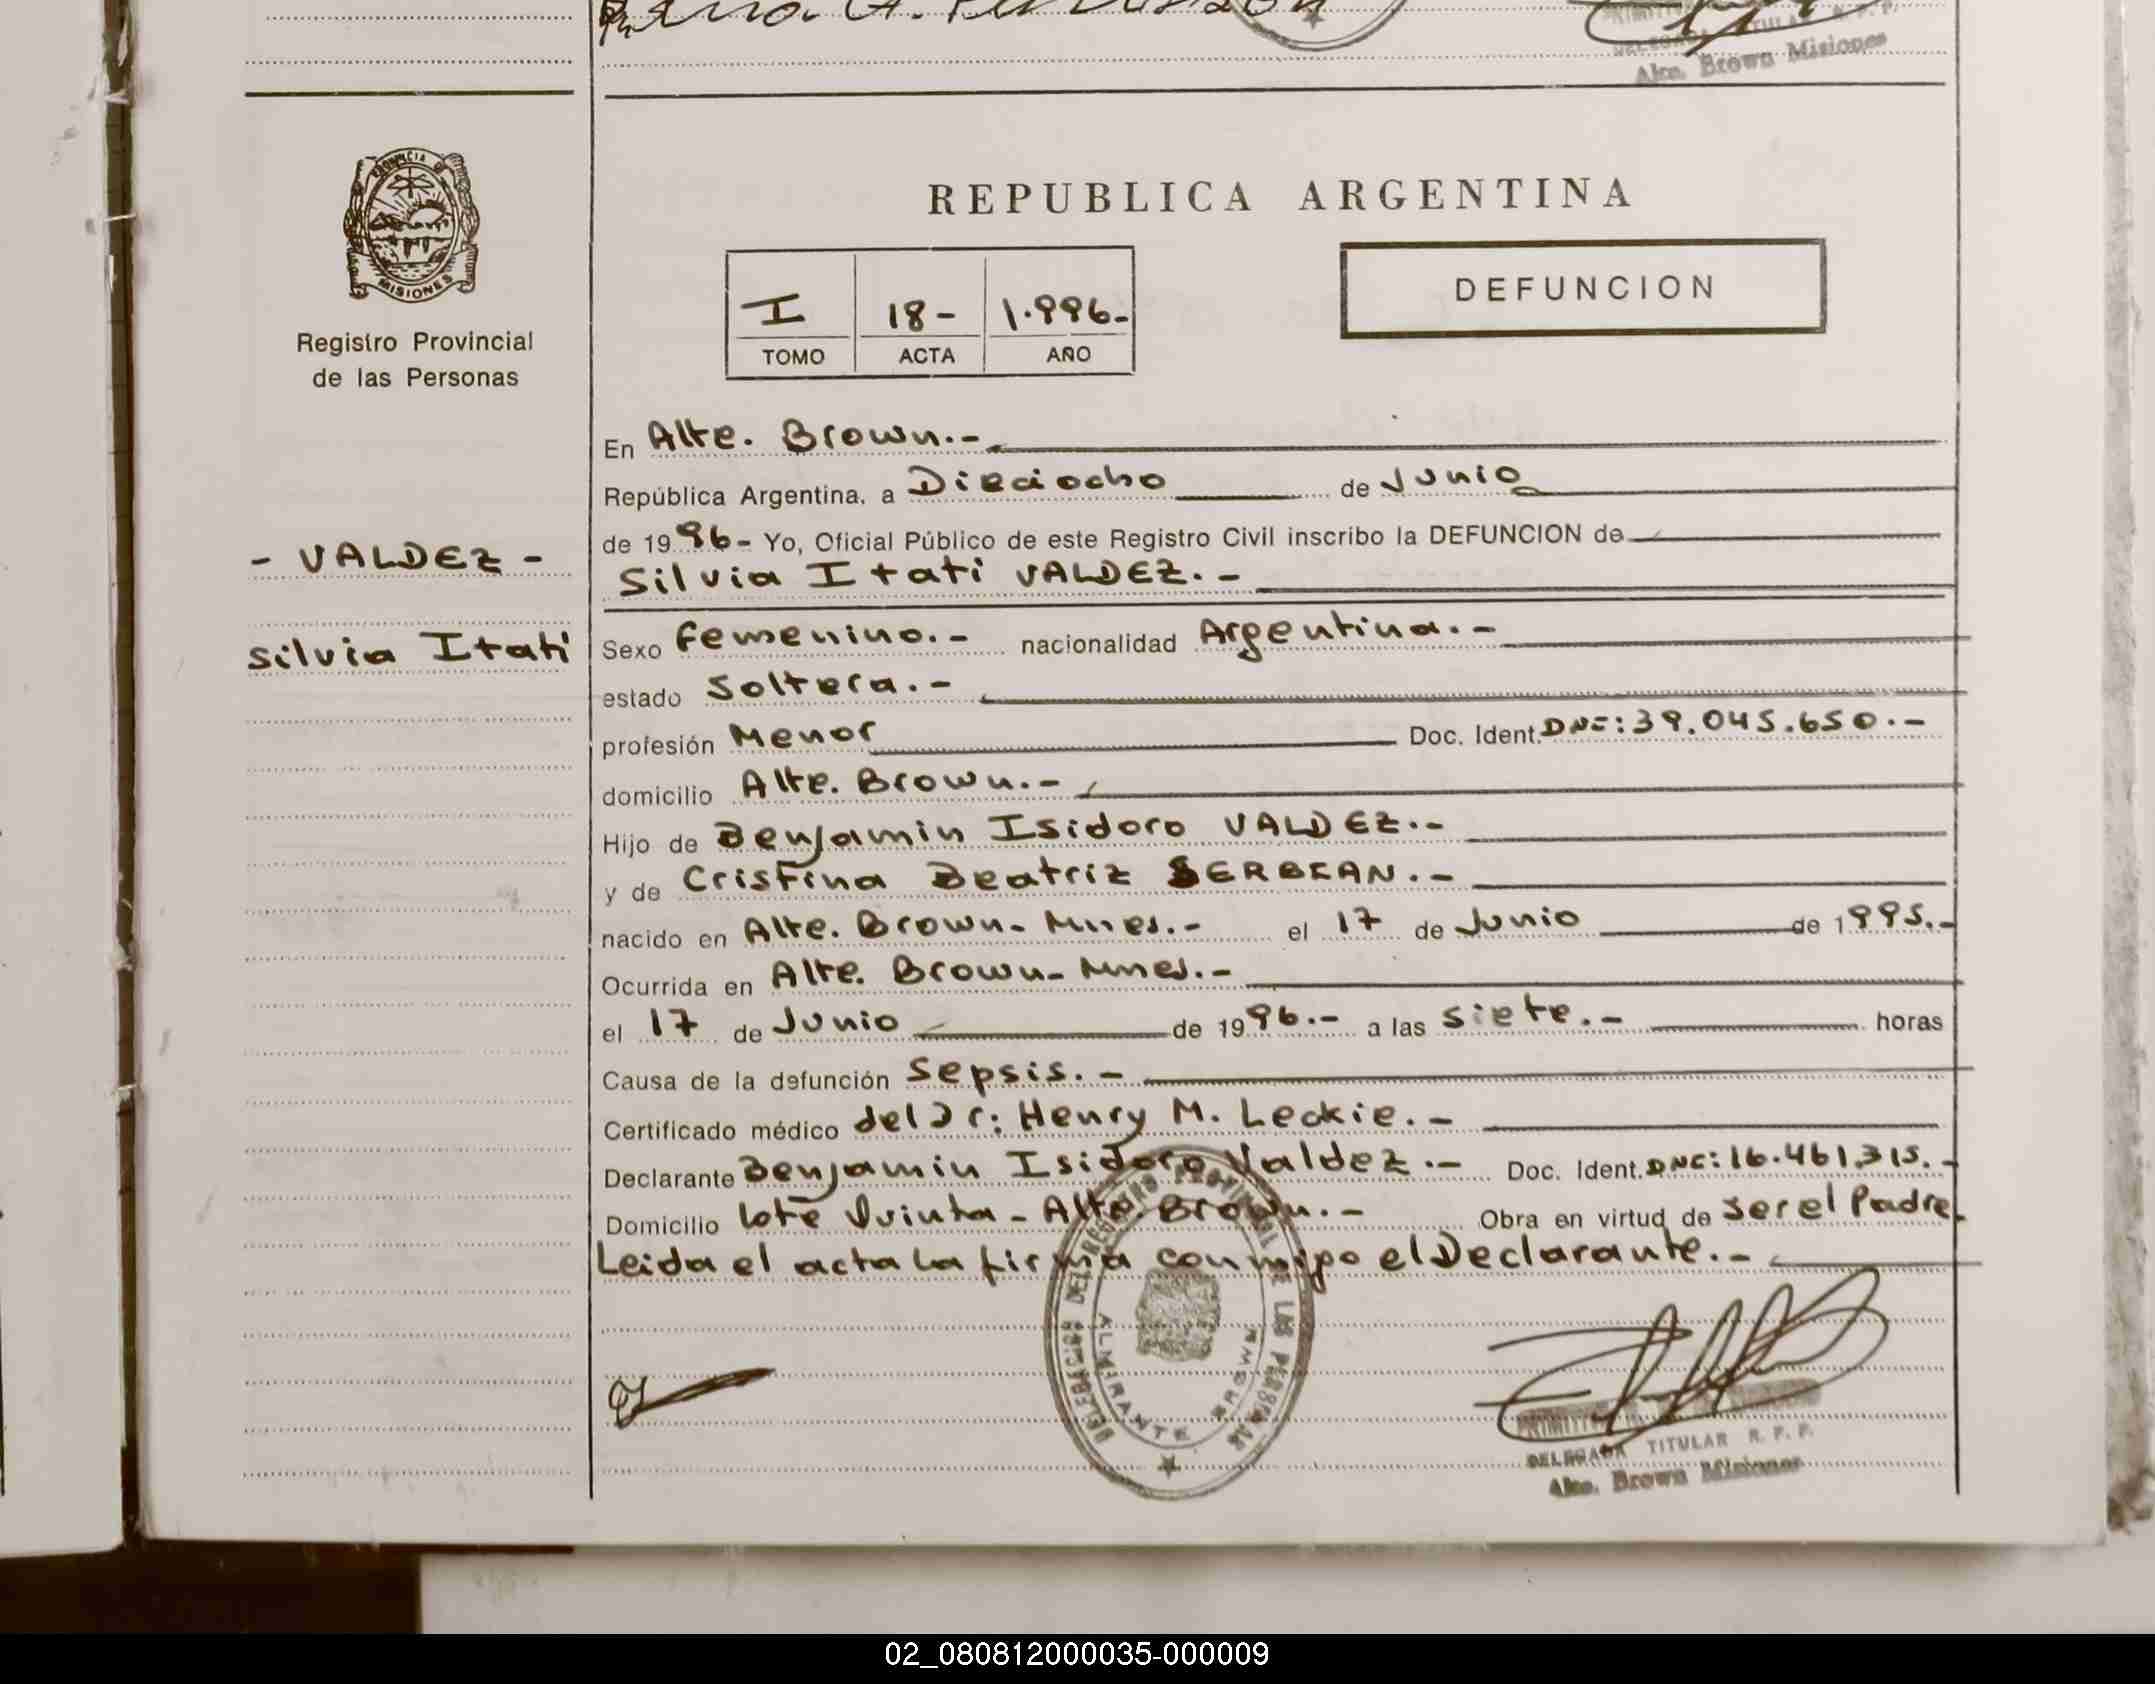 Alte. Brown Misiones
PROVINCIA DE
MISIONES
Registro Provincial
de las Personas
REPUBLICA ARGENTINA
I 18- 1.996-
TOMO ACTA AÑO
DEFUNCION
En Alte. Brown.-
República Argentina, a Dieciocho de Junio
de 1996- Yo, Oficial Público de este Registro Civil inscribo la DEFUNCION de
- VALDEZ -
Silvia Itati VALDEZ.-
Silvia Itati
Sexo femenino.- nacionalidad Argentina.-
estado Soltera.-
profesión Menor Doc. Ident. DNI: 39.045.650.-
domicilio Alte. Brown.-
Hijo de Benjamin Isidoro VALDEZ.-
y de Cristina Beatriz SERBEAN.-
nacido en Alte. Brown- Mnes.- el 17 de Junio de 1995.-
Ocurrida en Alte. Brown- Mnes.-
el 17 de Junio de 1996.- a las siete.- horas
Causa de la defunción Sepsis.-
Certificado médico del Dr: Henry M. Leckie.-
Declarante Benjamin Isidoro Valdez.- Doc. Ident. DNI: 16.461.315.-
Domicilio lote Quinta - Alte. Brown.- Obra en virtud de ser el Padre
Leida el acta la firma conmigo el Declarante.-
DEL REGISTRO PROVINCIAL DE LAS PERSONAS
ALMIRANTE BROWN
DELEGADA TITULAR R. P. P.
Alte. Brown Misiones
02_080812000035-000009